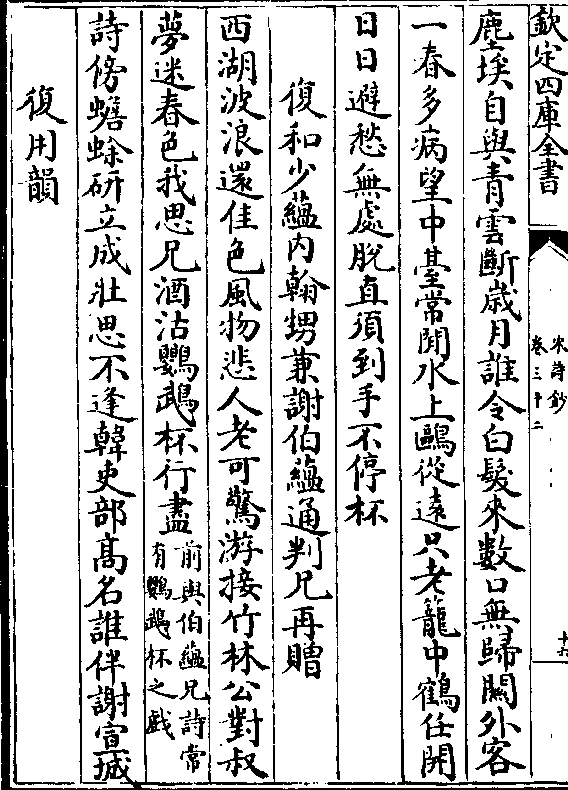 欽定四庫全書
宋詩鈔
卷三十二
塵埃自與青雲斷歲月誰令白髮來數口無歸闗外客
一春多病望中臺常閒水上鷗從遠只老籠中鶴任開
日日避愁無處脫直須到手不停杯
復和少藴内翰甥兼謝伯藴通判兄再贈
西湖波浪還佳色風物悲人老可驚游接竹林公對叔
夢迷春色我思兄酒沽鸚鵡杯行盡
前與伯藴兄詩常
有鸚鵡杯之戲
詩傍蟾蜍硏立成壯思不逢韓吏部髙名誰伴謝宣城
復用韻